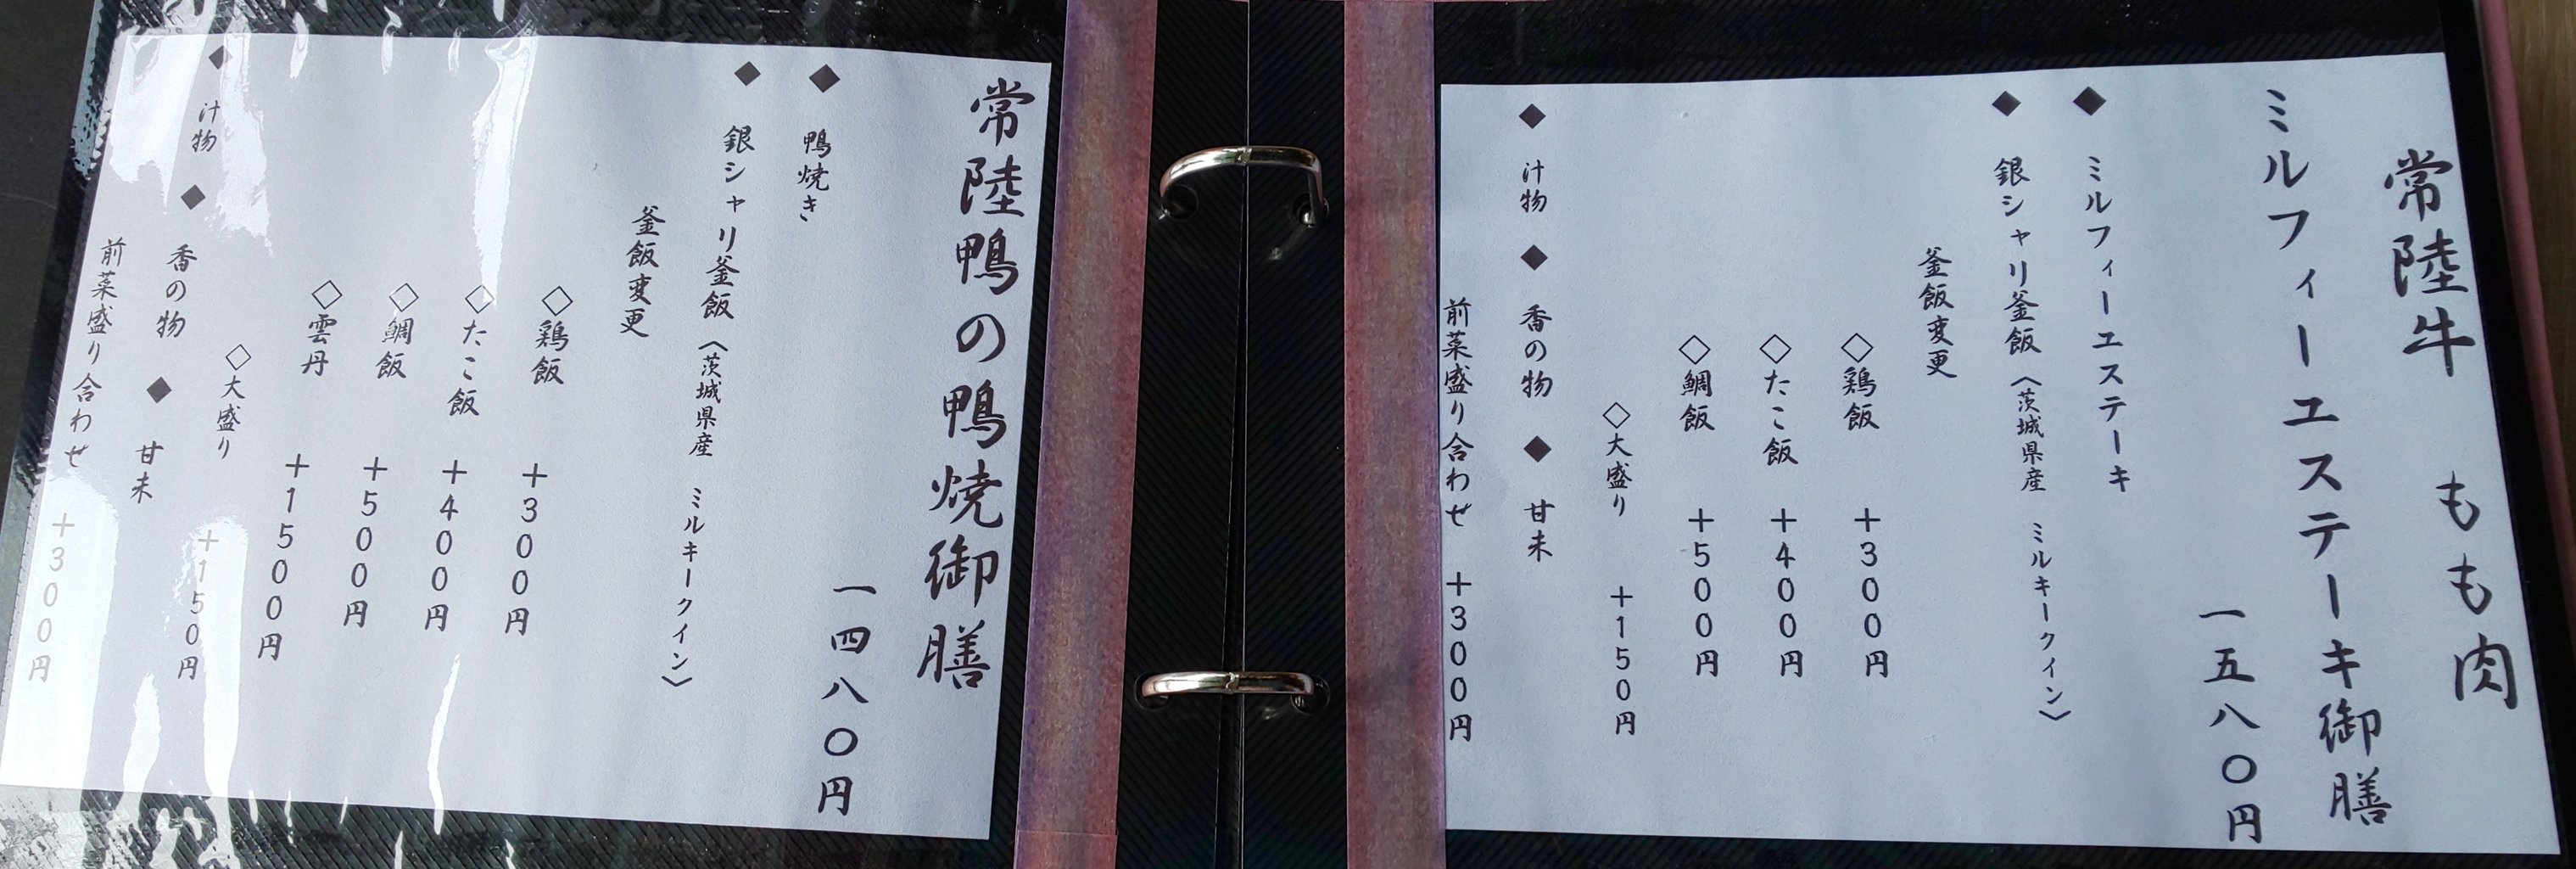 常陸牛　もも肉
ミルフィーユステーキ御膳
一五八〇円
◆ ミルフィーユステーキ
◆ 銀シャリ釜飯〈茨城県産　ミルキークイン〉
釜飯変更
◇鶏飯　＋３００円
◇たこ飯　＋４００円
◇鯛飯　＋５００円
◇大盛り　＋１５０円
◆ 汁物　◆ 香の物　◆ 甘未
前菜盛り合わせ　＋３００円
常陸鴨の鴨焼御膳
一四八〇円
◆ 鴨焼き
◆ 銀シャリ釜飯〈茨城県産　ミルキークイン〉
釜飯変更
◇鶏飯　＋３００円
◇たこ飯　＋４００円
◇鯛飯　＋５００円
◇雲丹　＋１５００円
◇大盛り　＋１５０円
◆ 汁物　◆ 香の物　◆ 甘未
前菜盛り合わせ　＋３００円